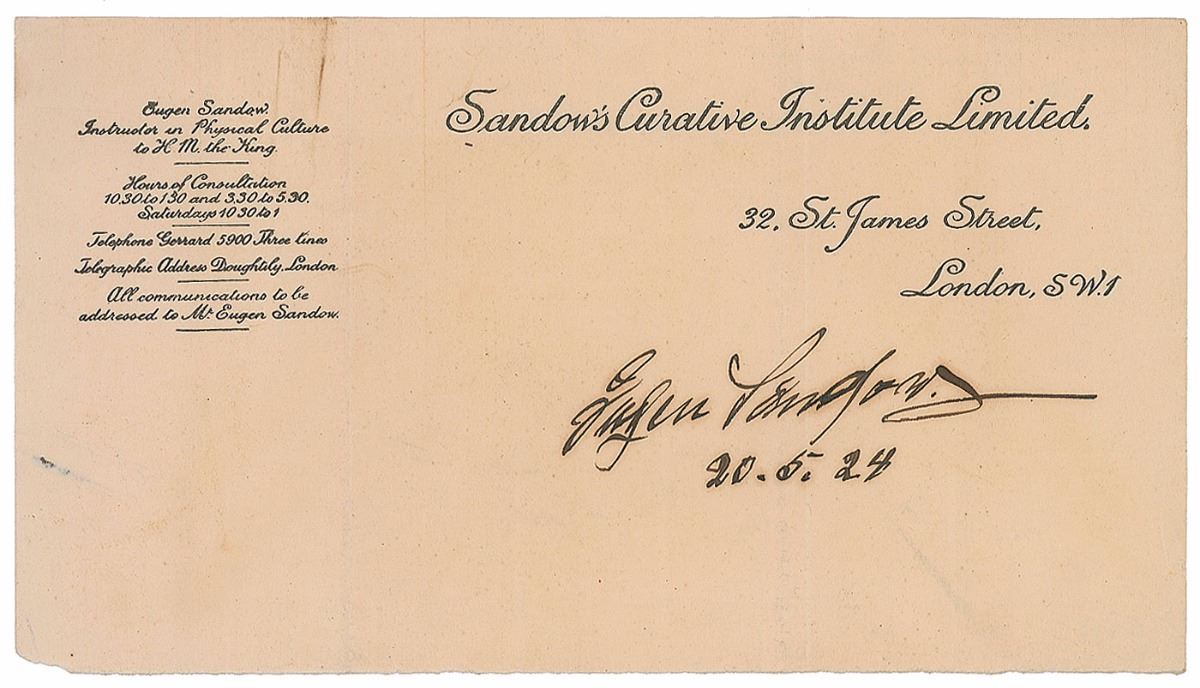 Eugen Sandow.
Instructor in Physical Culture
to H. M. the King.
Hours of Consultation
10.30 to 1.30 and 3.30 to 5.30.
Saturdays 10.30 to 1
Telephone Gerrard 5900 Three Lines
Telegraphic Address Doughtily, London
All communications to be
addressed to Mr. Eugen Sandow.
Sandow's Curative Institute Limited.
32, St. James Street,
London, S.W.1
Eugen Sandow.
20.5.24